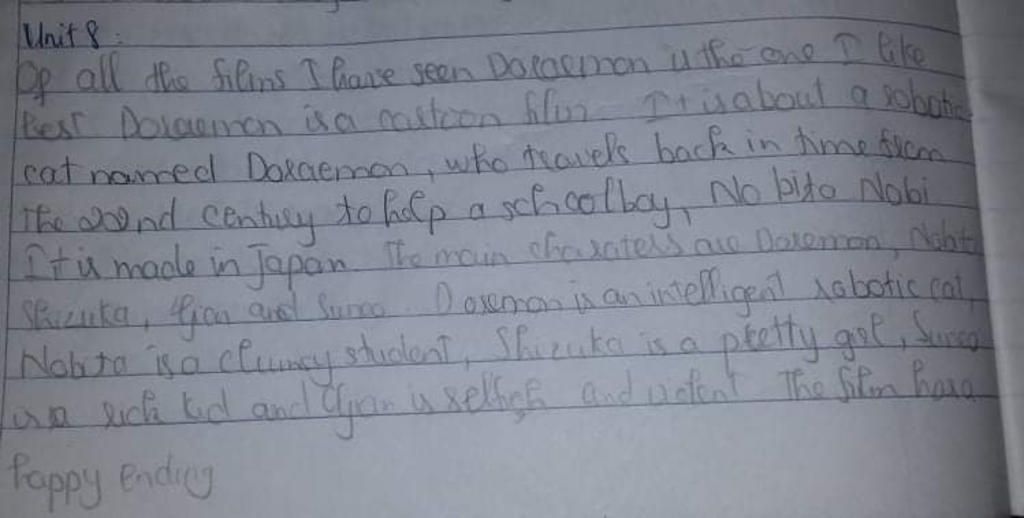 Unit 8:
Of all the films I have seen Doraemon is the one I like
best Doraemon is a cartoon film It is about a robotic
cat named Doraemon, who travels back in time from
the 22nd century to help a schoolboy, Nobita Nobi
It is made in Japan The main charaters are Doremon, Nobita
Shizuka, Gian and Suneo. Doremon is an intelligent robotic cat,
Nobita is a clumcy student, Shizuka is a pretty girl, Suneo
is a rich kid and Gian is selfish and violent The film has a
happy Ending